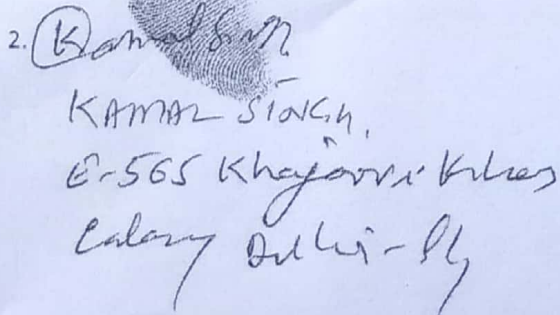 2. Kamal Singh
KAMAL SINGH,
E-565 Khajoori Khas
Colony Delhi-94